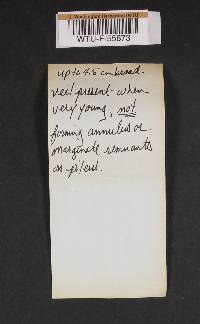 U. Washington Herbarium (WTU)
WTU-F-55673
up to 4.5 cm broad.
veil present - when
very young, not
forming annulus or
marginate remnants
on pileus.